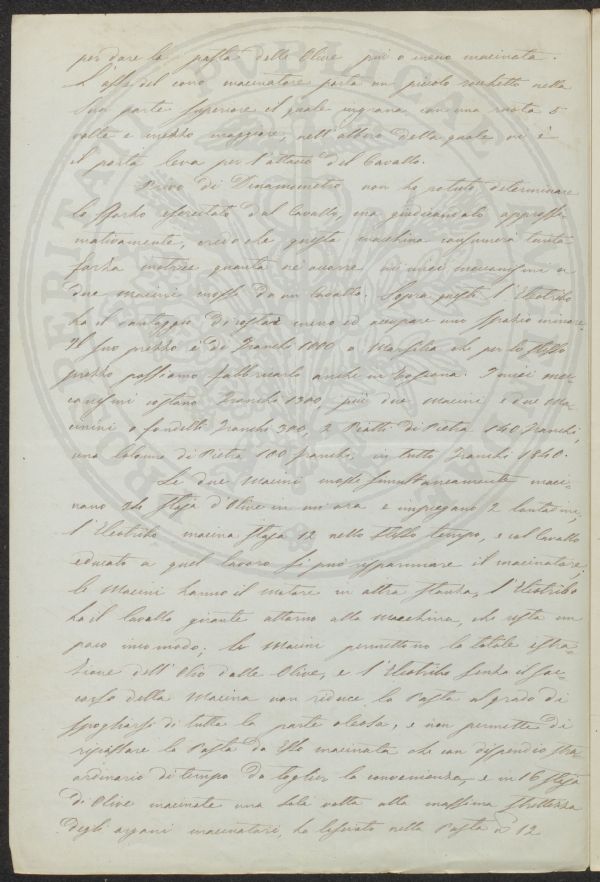 per dare la pasta delle Olive più o meno macinata.
L'asse del cono macinatore porta un piccolo rocchetto nella
sua parte superiore il quale ingrana con una ruota 5
volte e mezzo maggiore, nell'albero della quale vi è
il porta leva per l'attacco del Cavallo.
Privo di Dinamometro non ho potuto determinare
lo sforzo esercitato dal Cavallo, ma giudicandolo approssi-
mativamente, credo che questa macchina consumerà tanta
forza motrice quanta ne occorre ai miei meccanismi a
due macini mossi da un Cavallo. Sopra questi l'Eleotribo
ha il vantaggio di costar meno ed occupare uno spazio minore.
Il suo prezzo è di Franchi 1000 a Marsilia che per lo stesso
prezzo possiamo fabbricarlo anche in Toscana. I miei mec-
canismi costano Franchi 1300 più due Macini e due Ma-
cinini o fondelli Franchi 300, 2 Piatti di Pietra 140 franchi,
una Colonna di Pietra 100 franchi; in tutto Franchi 1840.
Le due Macini mosse simultaneamente maci-
nano staja d'Olive in un'ora e impiegano 2 Contadini;
l'Eleotribo macina staja 12 nello stesso tempo, e col Cavallo
educato a quel lavoro si può risparmiare il macinatore;
le Macini hanno il motore in altra stanza, l'Eleotribo
ha il Cavallo girante attorno alla Macchina, che resta un
poco incomodo; le Macini permettono la totale estra-
zione dell'Olio dalle Olive, e l'Eleotribo senza il soc-
corso della Macina non riduce la Pasta al grado di
spogliarsi di tutta la parte oleosa, e non permette di
ripassare la Pasta da Esso macinata che con dispendio stra-
ordinario di tempo da toglier la convenienza, e in 16 staja
di Olive macinate una sola volta alla massima strettezza
degli organi macinatori, ha lasciato nella Pasta 12
PROSPERITATI PVBLICAE